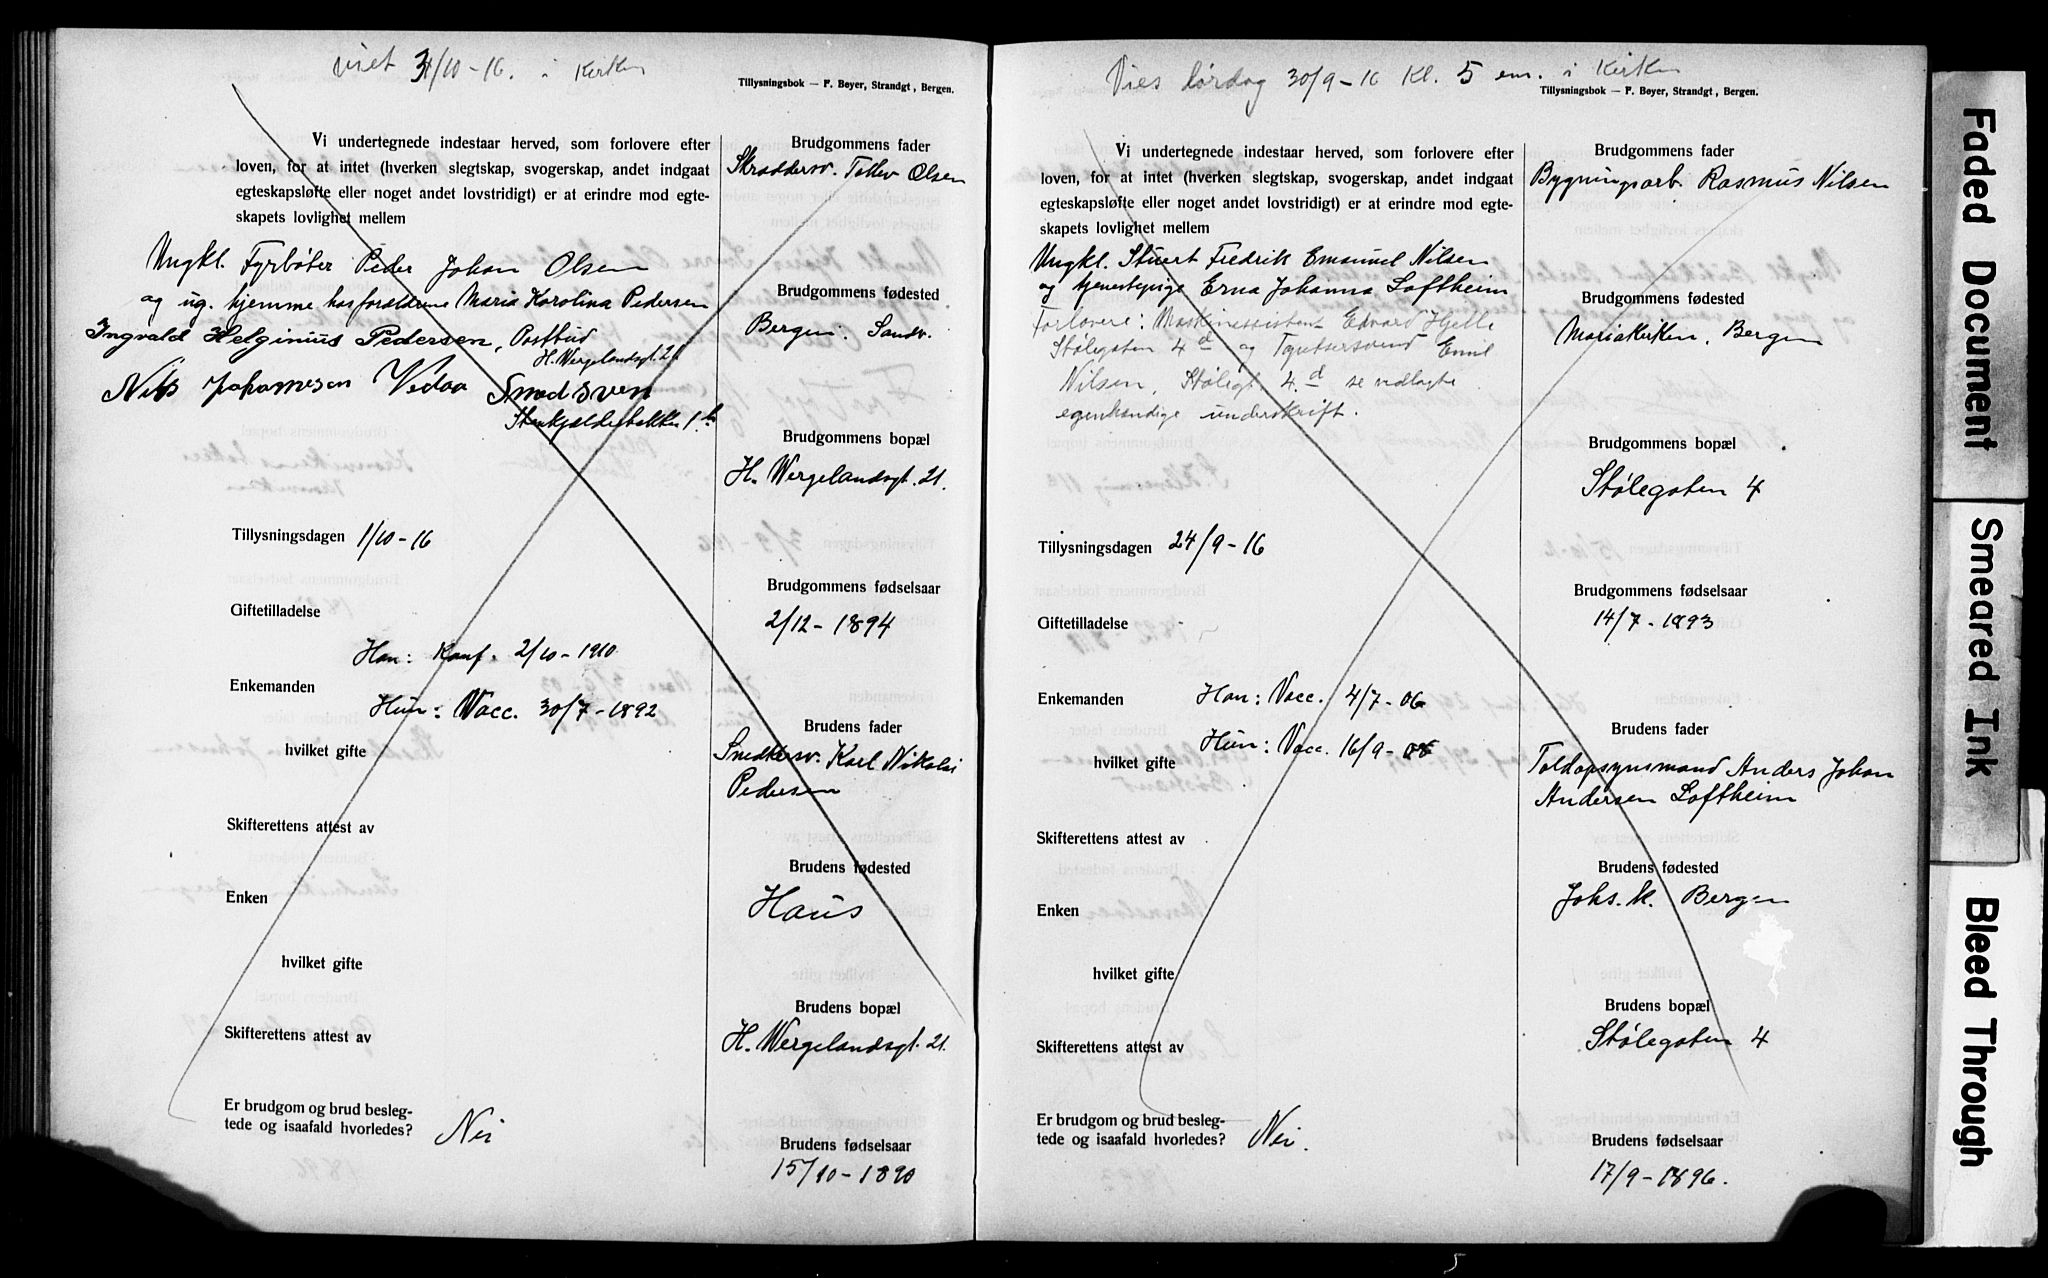 viet 3/10-16. i Kirken
Tillysningsbok — F. Bøyer, Strandgt, Bergen.
Vi undertegnede indestaar herved, som forlovere efter
loven, for at intet (hverken slegtskap, svogerskap, andet indgaat
egteskapsløfte eller noget andet lovstridigt) er at erindre mod egte-
skapets lovlighet mellem
Ungkl. Fyrbøter Peder Johan Olsen
og ug. hjemme hos forældrene Maria Karolina Pedersen
Ingvald Helginius Pedersen, Postbud
H. Wergelandsgt. 21
Nils Johannesen Vedaa Smedsven
Stenkjælderbakken 1 b
Tillysningsdagen 1/10-16
Giftetilladelse
Han: Konf. 2/10-1910
Enkemanden
Hun: Vacc. 30/7-1892
hvilket gifte
Skifterettens attest av
Enken
hvilket gifte
Skifterettens attest av
Er brudgom og brud besleg-
tede og isaafald hvorledes? Nei
Brudgommens fader
Skræddersv. Tollev Olsen
Brudgommens fødested
Bergen: Sandv.
Brudgommens bopæl
H. Wergelandsgt. 21.
Brudgommens fødselsaar
2/12-1894
Brudens fader
Snedkersv. Karl Nikolai
Pedersen
Brudens fødested
Haus
Brudens bopæl
H. Wergelandsgt. 21.
Brudens fødselsaar
15/10-1890
Vies lørdag 30/9-16 Kl. 5 em. i Kirken
Tillysningsbok — F. Bøyer, Strandgt, Bergen.
Vi undertegnede indestaar herved, som forlovere efter
loven, for at intet (hverken slegtskap, svogerskap, andet indgaat
egteskapsløfte eller noget andet lovstridigt) er at erindre mod egte-
skapets lovlighet mellem
Ungkl. Stuert Fredrik Emanuel Nilsen
og tjenestepige Erna Johanna Loftheim
Forlovere: Maskinassistent Edvard Hjelle
Stølegaten 4 d og Tapetsersvend Emil
Nilsen, Stølegt. 4 d se vedlagte
egenhændige underskrift.
Tillysningsdagen 24/9-16
Giftetilladelse
Enkemanden
Han: Vacc. 4/7-06
Hun: Vacc. 16/9-08
hvilket gifte
Skifterettens attest av
Enken
hvilket gifte
Skifterettens attest av
Er brudgom og brud besleg-
tede og isaafald hvorledes? Nei.
Brudgommens fader
Bygningsarb. Rasmus Nilsen
Brudgommens fødested
Mariakirken, Bergen
Brudgommens bopæl
Stølegaten 4
Brudgommens fødselsaar
14/7-1893
Brudens fader
Toldopsynsmand Anders Johan
Andersen Loftheim
Brudens fødested
Johs. k. Bergen
Brudens bopæl
Stølegaten 4
Brudens fødselsaar
17/9-1896.
5
Faded Document
Smeared Ink
Bleed Through